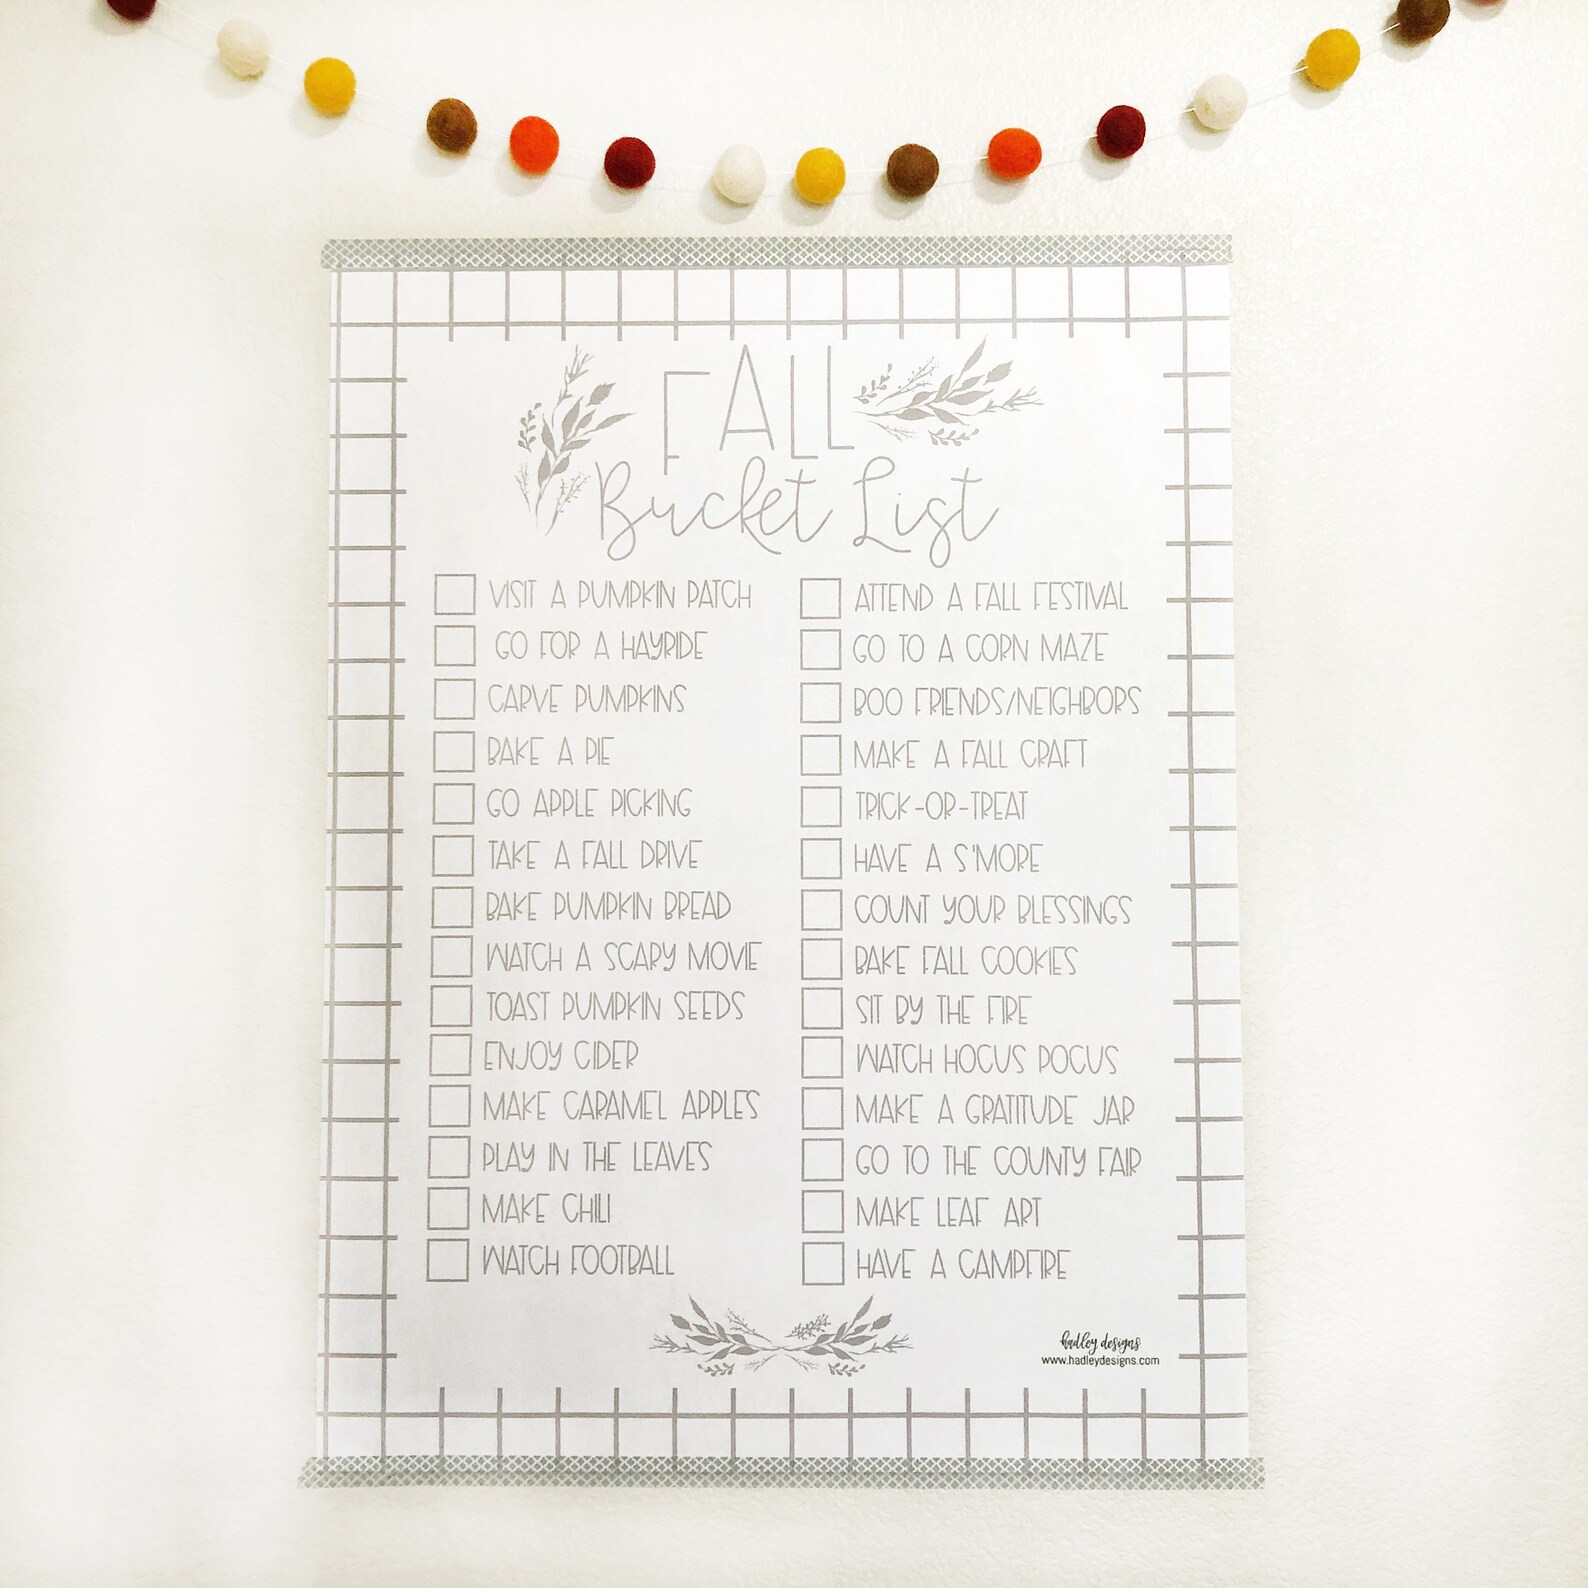 FALL
Bucket List
VISIT A PUMPKIN PATCH
GO FOR A HAYRIDE
CARVE PUMPKINS
BAKE A PIE
GO APPLE PICKING
TAKE A FALL DRIVE
BAKE PUMPKIN BREAD
WATCH A SCARY MOVIE
TOAST PUMPKIN SEEDS
ENJOY CIDER
MAKE CARAMEL APPLES
PLAY IN THE LEAVES
MAKE CHILI
WATCH FOOTBALL
ATTEND A FALL FESTIVAL
GO TO A CORN MAZE
BOO FRIENDS/NEIGHBORS
MAKE A FALL CRAFT
TRICK-OR-TREAT
HAVE A S'MORE
COUNT YOUR BLESSINGS
BAKE FALL COOKIES
SIT BY THE FIRE
WATCH HOCUS POCUS
MAKE A GRATITUDE JAR
GO TO THE COUNTY FAIR
MAKE LEAF ART
HAVE A CAMPFIRE
hadley designs
www.hadleydesigns.com